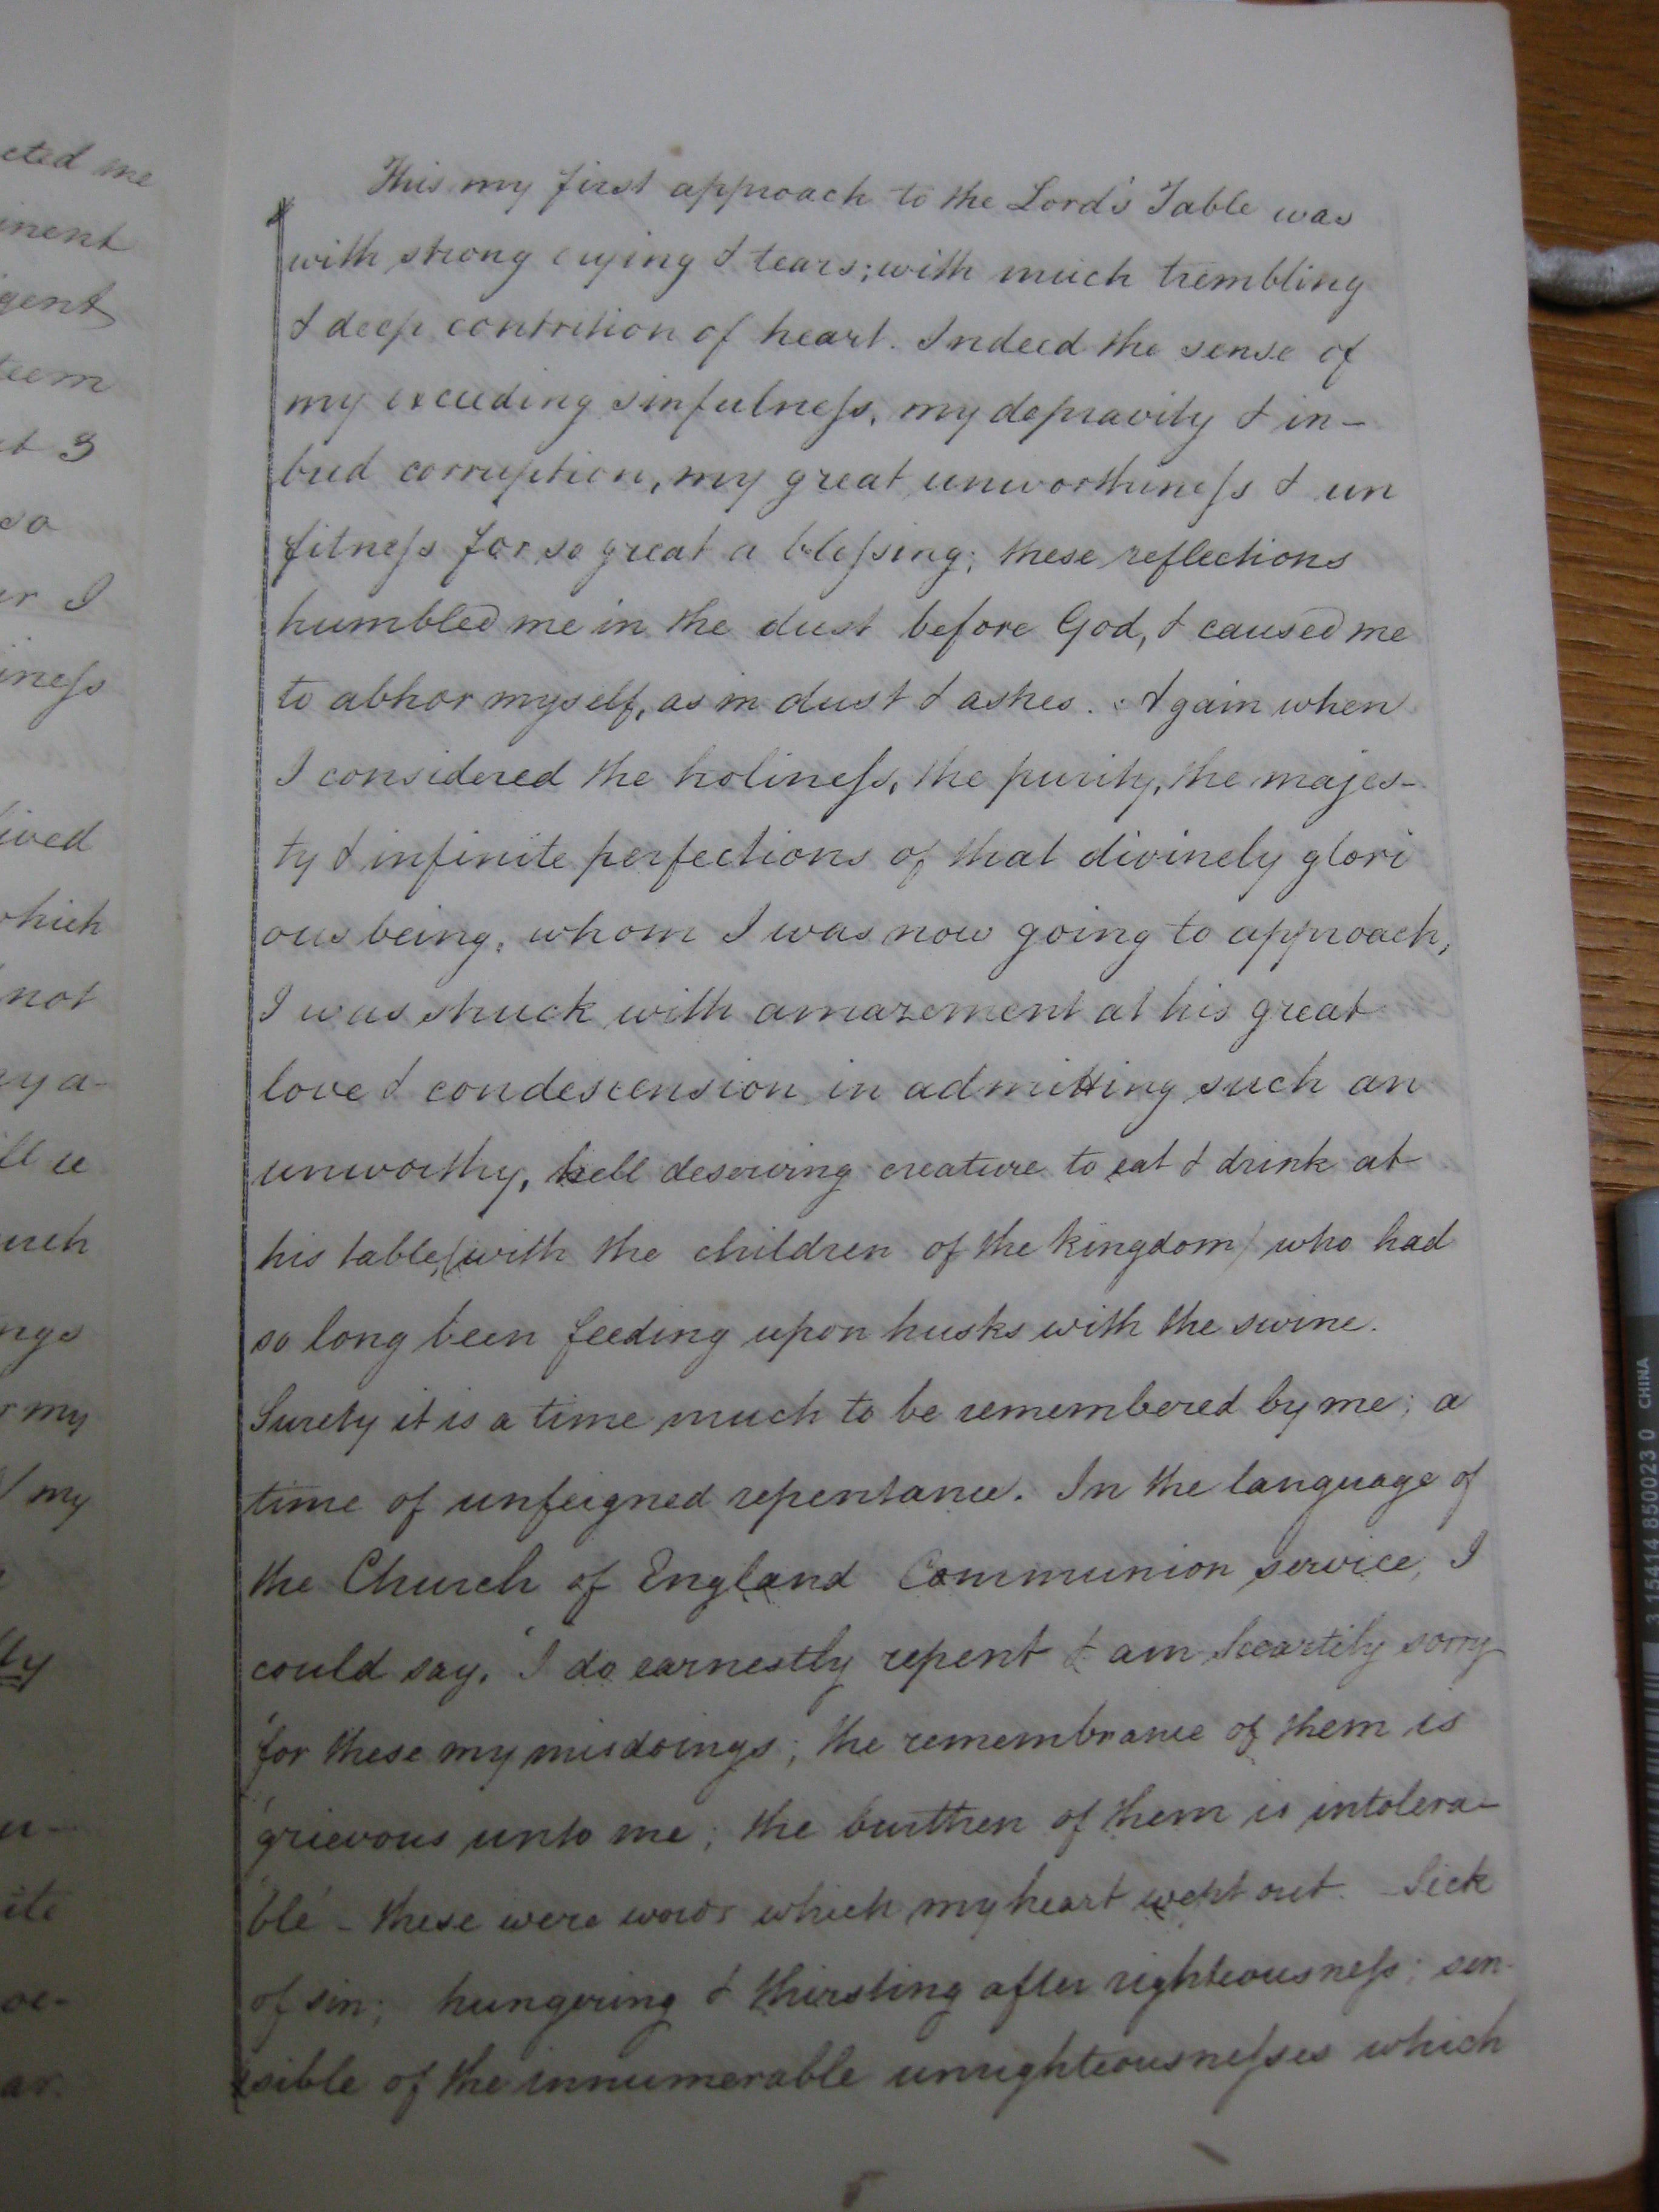 cted me
inent
gent
teem
t 3
so
er I
iness
lived
which
not
ay a-
ll u
uch
ngs
my
my
ty
u-
ite
oe-
ar.
This my first approach to the Lord's Table was
with strong crying & tears; with much trembling
& deep contrition of heart. Indeed the sense of
my exceeding sinfulness, my depravity & in-
bred corruption, my great unworthiness & un
fitness for so great a blessing; these reflections
humbled me in the dust before God, & caused me
to abhor myself, as in dust & ashes. Again when
I considered the holiness, the purity, the majes-
ty & infinite perfections of that divinely glori
ous being, whom I was now going to approach,
I was struck with amazement at his great
love & condescension in admitting such an
unworthy, hell deserving creature to eat & drink at
his table, (with the children of the kingdom) who had
so long been feeding upon husks with the swine.
Surely it is a time much to be remembered by me; a
time of unfeigned repentance. In the language of
the Church of England Communion service, I
could say, 'I do earnestly repent & am heartily sorry
'for these my misdoings; the remembrance of them is
'grievous unto me; the burthen of them is intolera-
'ble' - these were words which my heart wept out. Sick
of sin; hungering & thirsting after righteousness; sen-
sible of the innumerable unrighteousnesses which
3 15414 850023 0 CHINA